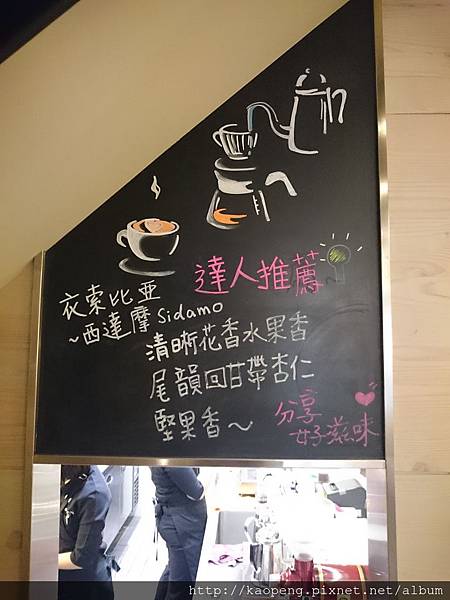 達人推薦
衣索比亞
~西達摩 Sidamo
清晰花香水果香
尾韻回甘帶杏仁
堅果香~
分享
好滋味
http://kaopeng.pixnet.net/album